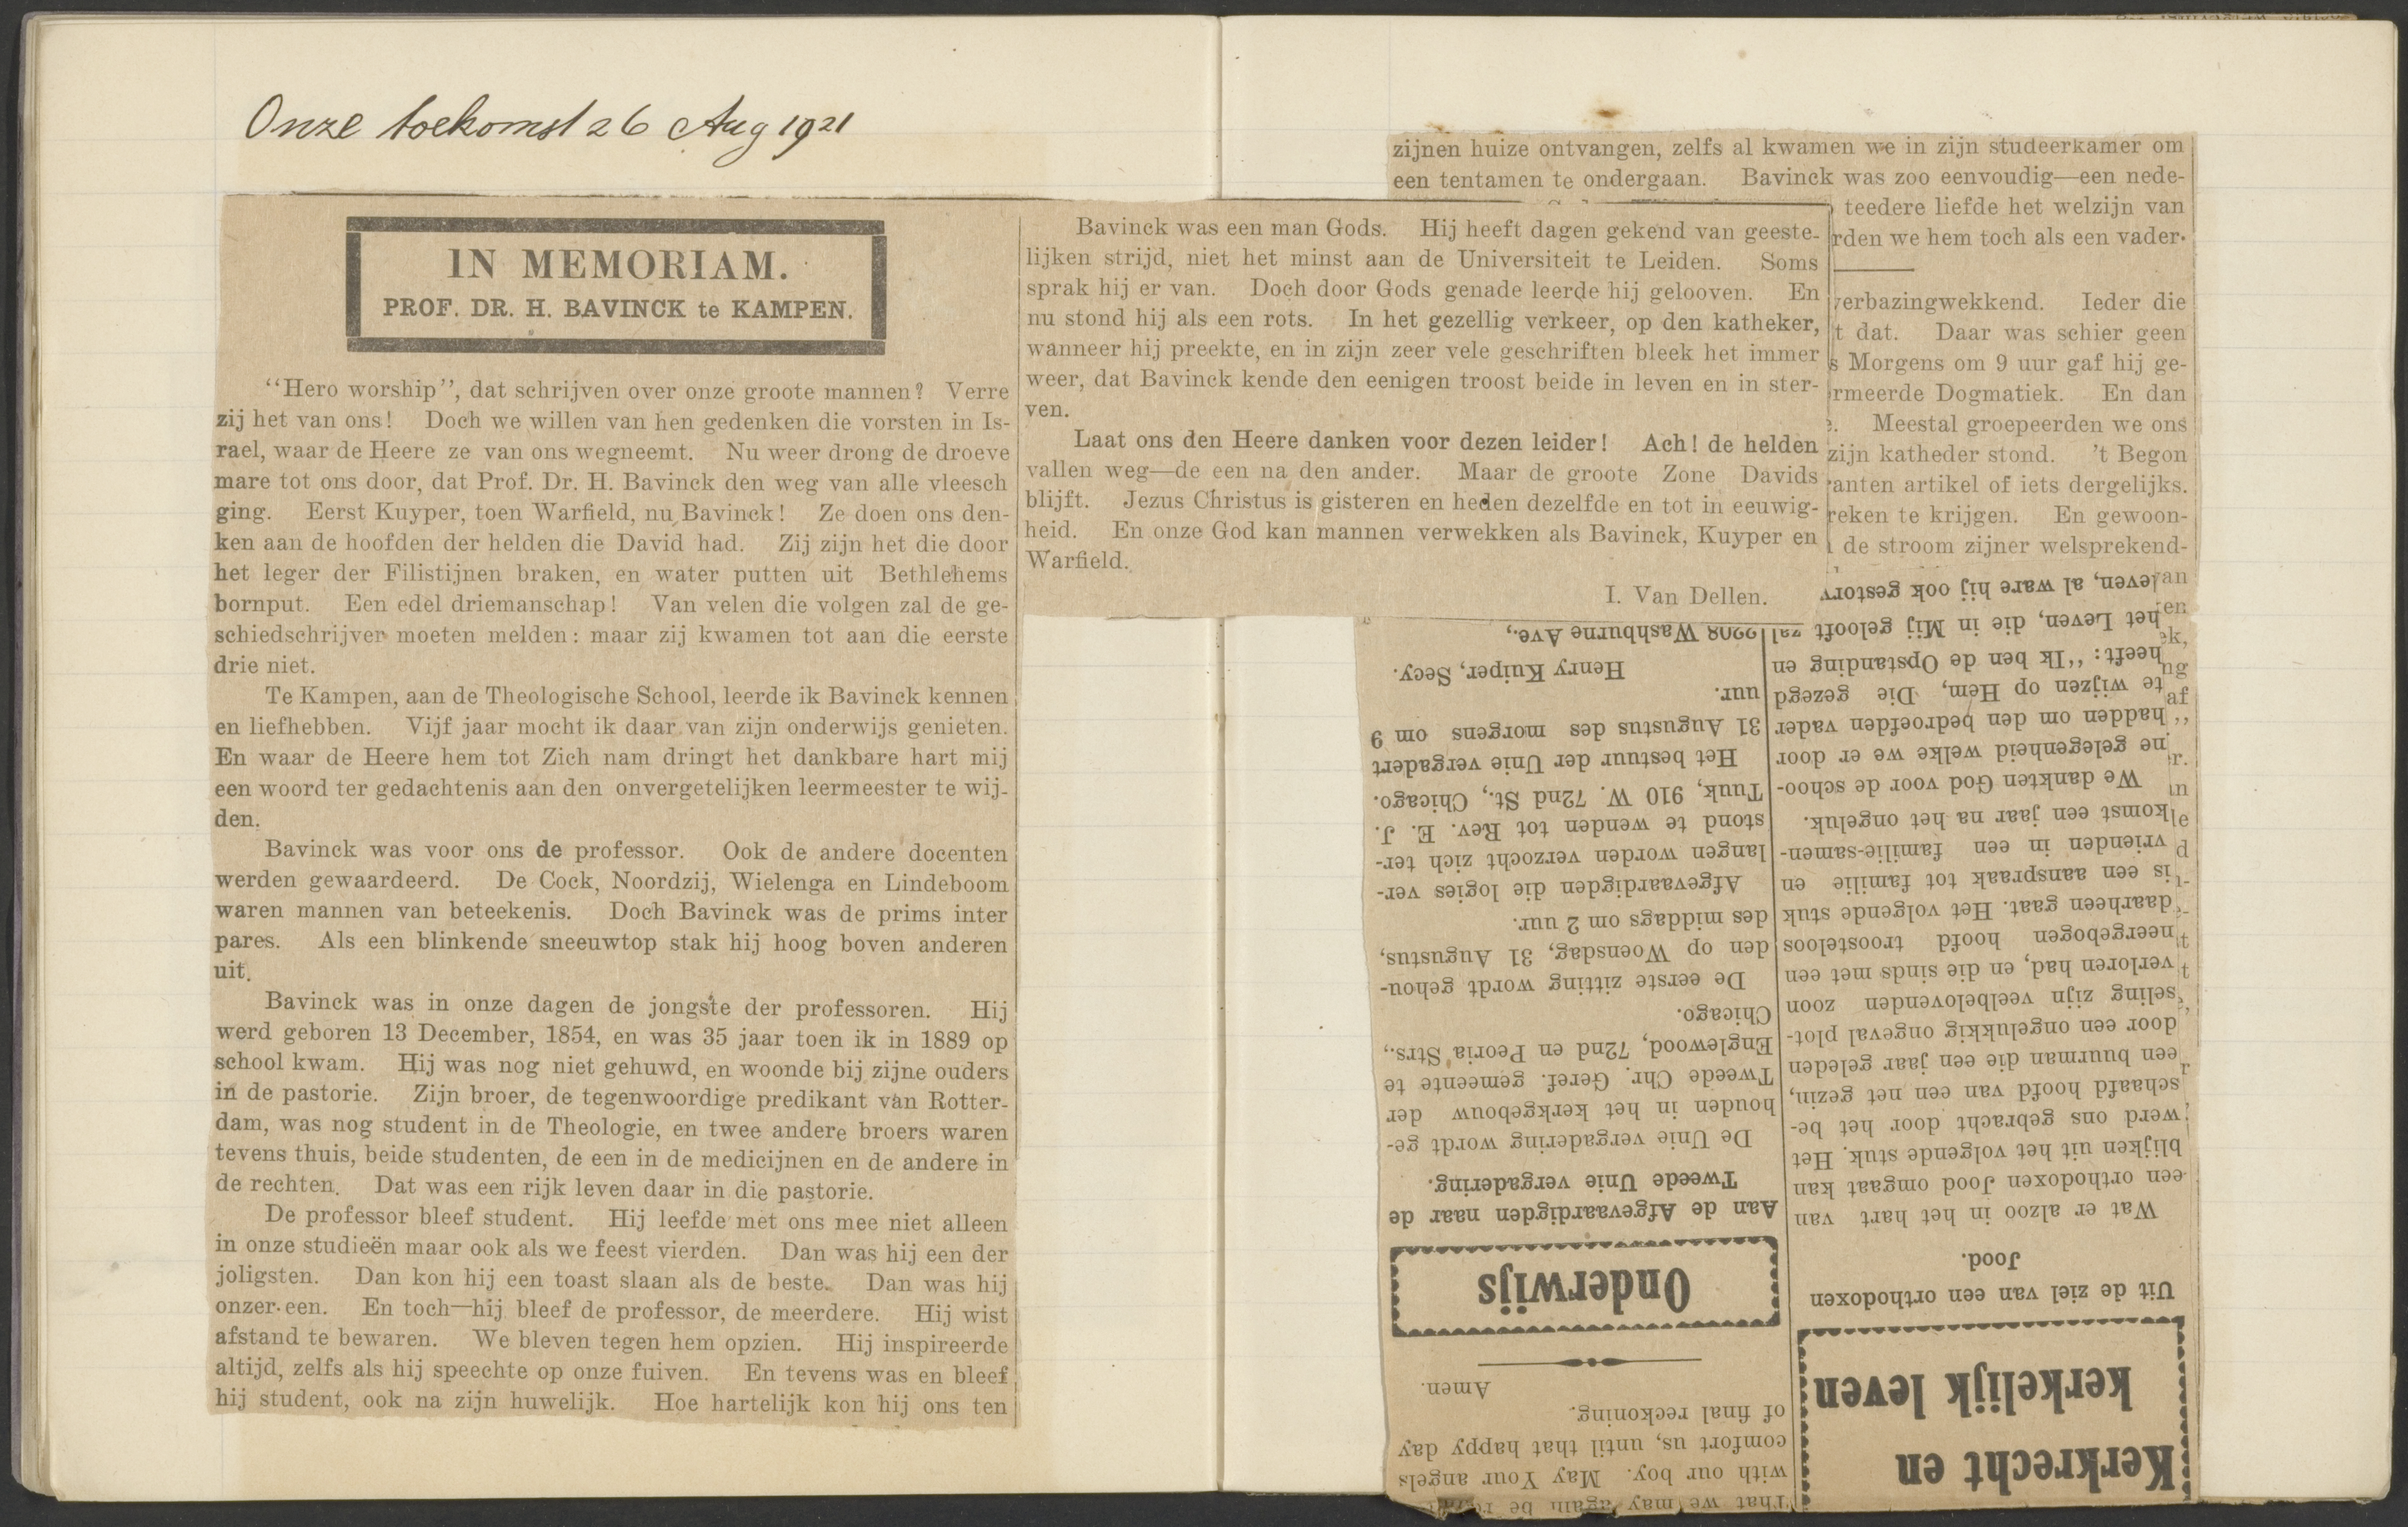 Onze toekomst 26 Aug 1921
IN MEMORIAM.
PROF. DR. H. BAVINCK te KAMPEN.
“Hero worship”, dat schrijven over onze groote mannen? Verre
zij het van ons! Doch we willen van hen gedenken die vorsten in Is-
rael, waar de Heere ze van ons wegneemt. Nu weer drong de droeve
mare tot ons door, dat Prof. Dr. H. Bavinck den weg van alle vleesch
ging. Eerst Kuyper, toen Warfield, nu Bavinck! Ze doen ons den-
ken aan de hoofden der helden die David had. Zij zijn het die door
het leger der Filistijnen braken, en water putten uit Bethlehems
bornput. Een edel driemanschap! Van velen die volgen zal de ge-
schiedschrijver moeten melden: maar zij kwamen tot aan die eerste
drie niet.
Te Kampen, aan de Theologische School, leerde ik Bavinck kennen
en liefhebben. Vijf jaar mocht ik daar van zijn onderwijs genieten.
En waar de Heere hem tot Zich nam dringt het dankbare hart mij
een woord ter gedachtenis aan den onvergetelijken leermeester te wij-
den.
Bavinck was voor ons de professor. Ook de andere docenten
werden gewaardeerd. De Cock, Noordzij, Wielenga en Lindeboom
waren mannen van beteekenis. Doch Bavinck was de prims inter
pares. Als een blinkende sneeuwtop stak hij hoog boven anderen
uit.
Bavinck was in onze dagen de jongste der professoren. Hij
werd geboren 13 December, 1854, en was 35 jaar toen ik in 1889 op
school kwam. Hij was nog niet gehuwd, en woonde bij zijne ouders
in de pastorie. Zijn broer, de tegenwoordige predikant van Rotter-
dam, was nog student in de Theologie, en twee andere broers waren
tevens thuis, beide studenten, de een in de medicijnen en de andere in
de rechten. Dat was een rijk leven daar in die pastorie.
De professor bleef student. Hij leefde met ons mee niet alleen
in onze studieën maar ook als we feest vierden. Dan was hij een der
joligsten. Dan kon hij een toast slaan als de beste. Dan was hij
onzer een. En toch—hij bleef de professor, de meerdere. Hij wist
afstand te bewaren. We bleven tegen hem opzien. Hij inspireerde
altijd, zelfs als hij speechte op onze fuiven. En tevens was en bleef
hij student, ook na zijn huwelijk. Hoe hartelijk kon hij ons ten
Bavinck was een man Gods. Hij heeft dagen gekend van geeste-
lijken strijd, niet het minst aan de Universiteit te Leiden. Soms
sprak hij er van. Doch door Gods genade leerde hij gelooven. En
nu stond hij als een rots. In het gezellig verkeer, op den katheker,
wanneer hij preekte, en in zijn zeer vele geschriften bleek het immer
weer, dat Bavinck kende den eenigen troost beide in leven en in ster-
ven.
Laat ons den Heere danken voor dezen leider! Ach! de helden
vallen weg—de een na den ander. Maar de groote Zone Davids
blijft. Jezus Christus is gisteren en heden dezelfde en tot in eeuwig-
heid. En onze God kan mannen verwekken als Bavinck, Kuyper en
Warfield.
I. Van Dellen.
zijnen huize ontvangen, zelfs al kwamen we in zijn studeerkamer om
een tentamen te ondergaan. Bavinck was zoo eenvoudig—een nede-
teedere liefde het welzijn van
rden we hem toch als een vader.
verbazingwekkend. Ieder die
t dat. Daar was schier geen
s Morgens om 9 uur gaf hij ge-
rmeerde Dogmatiek. En dan
Meestal groepeerden we ons
zijn katheder stond. 't Begon
anten artikel of iets dergelijks.
reken te krijgen. En gewoon-
de stroom zijner welsprekend-
Kerkrecht en
kerkelijk leven
Uit de ziel van een orthodoxen
Jood.
Wat er alzoo in het hart van
een orthodoxen Jood omgaat kan
blijken uit het volgende stuk. Het
werd ons gebracht door het be-
schaafd hoofd van een net gezin,
een buurman die een jaar geleden
door een ongelukkig ongeval plot-
seling zijn veelbelovenden zoon
verloren had, en die sinds met een
neergebogen hoofd troosteloos
daarheen gaat. Het volgende stuk
is een aanspraak tot familie en
vrienden in een familie-samen-
komst een jaar na het ongeluk.
We dankten God voor de schoo-
ne gelegenheid welke we er door
hadden om den bedroefden vader
te wijzen op Hem, Die gezegd
heeft: “Ik ben de Opstanding en
het Leven, die in Mij gelooft zal
leven, al ware hij ook gestorv
That we may again be
with our boy. May Your angels
comfort us, until that happy day
of final reckoning.
Amen.
Onderwijs
Aan de Afgevaardigden naar de
Tweede Unie vergadering.
De Unie vergadering wordt ge-
houden in het kerkgebouw der
Tweede Chr. Geref. gemeente te
Englewood, 72nd en Peoria Strs.,
Chicago.
De eerste zitting wordt gehou-
den op Woensdag, 31 Augustus,
des middags om 2 uur.
Afgevaardigden die logies ver-
langen worden verzocht zich ter-
stond te wenden tot Rev. E. J.
Tuuk, 910 W. 72nd St., Chicago.
Het bestuur der Unie vergadert
31 Augustus des morgens om 9
uur.
Henry Kuiper, Secy.
2208 Washburne Ave.,